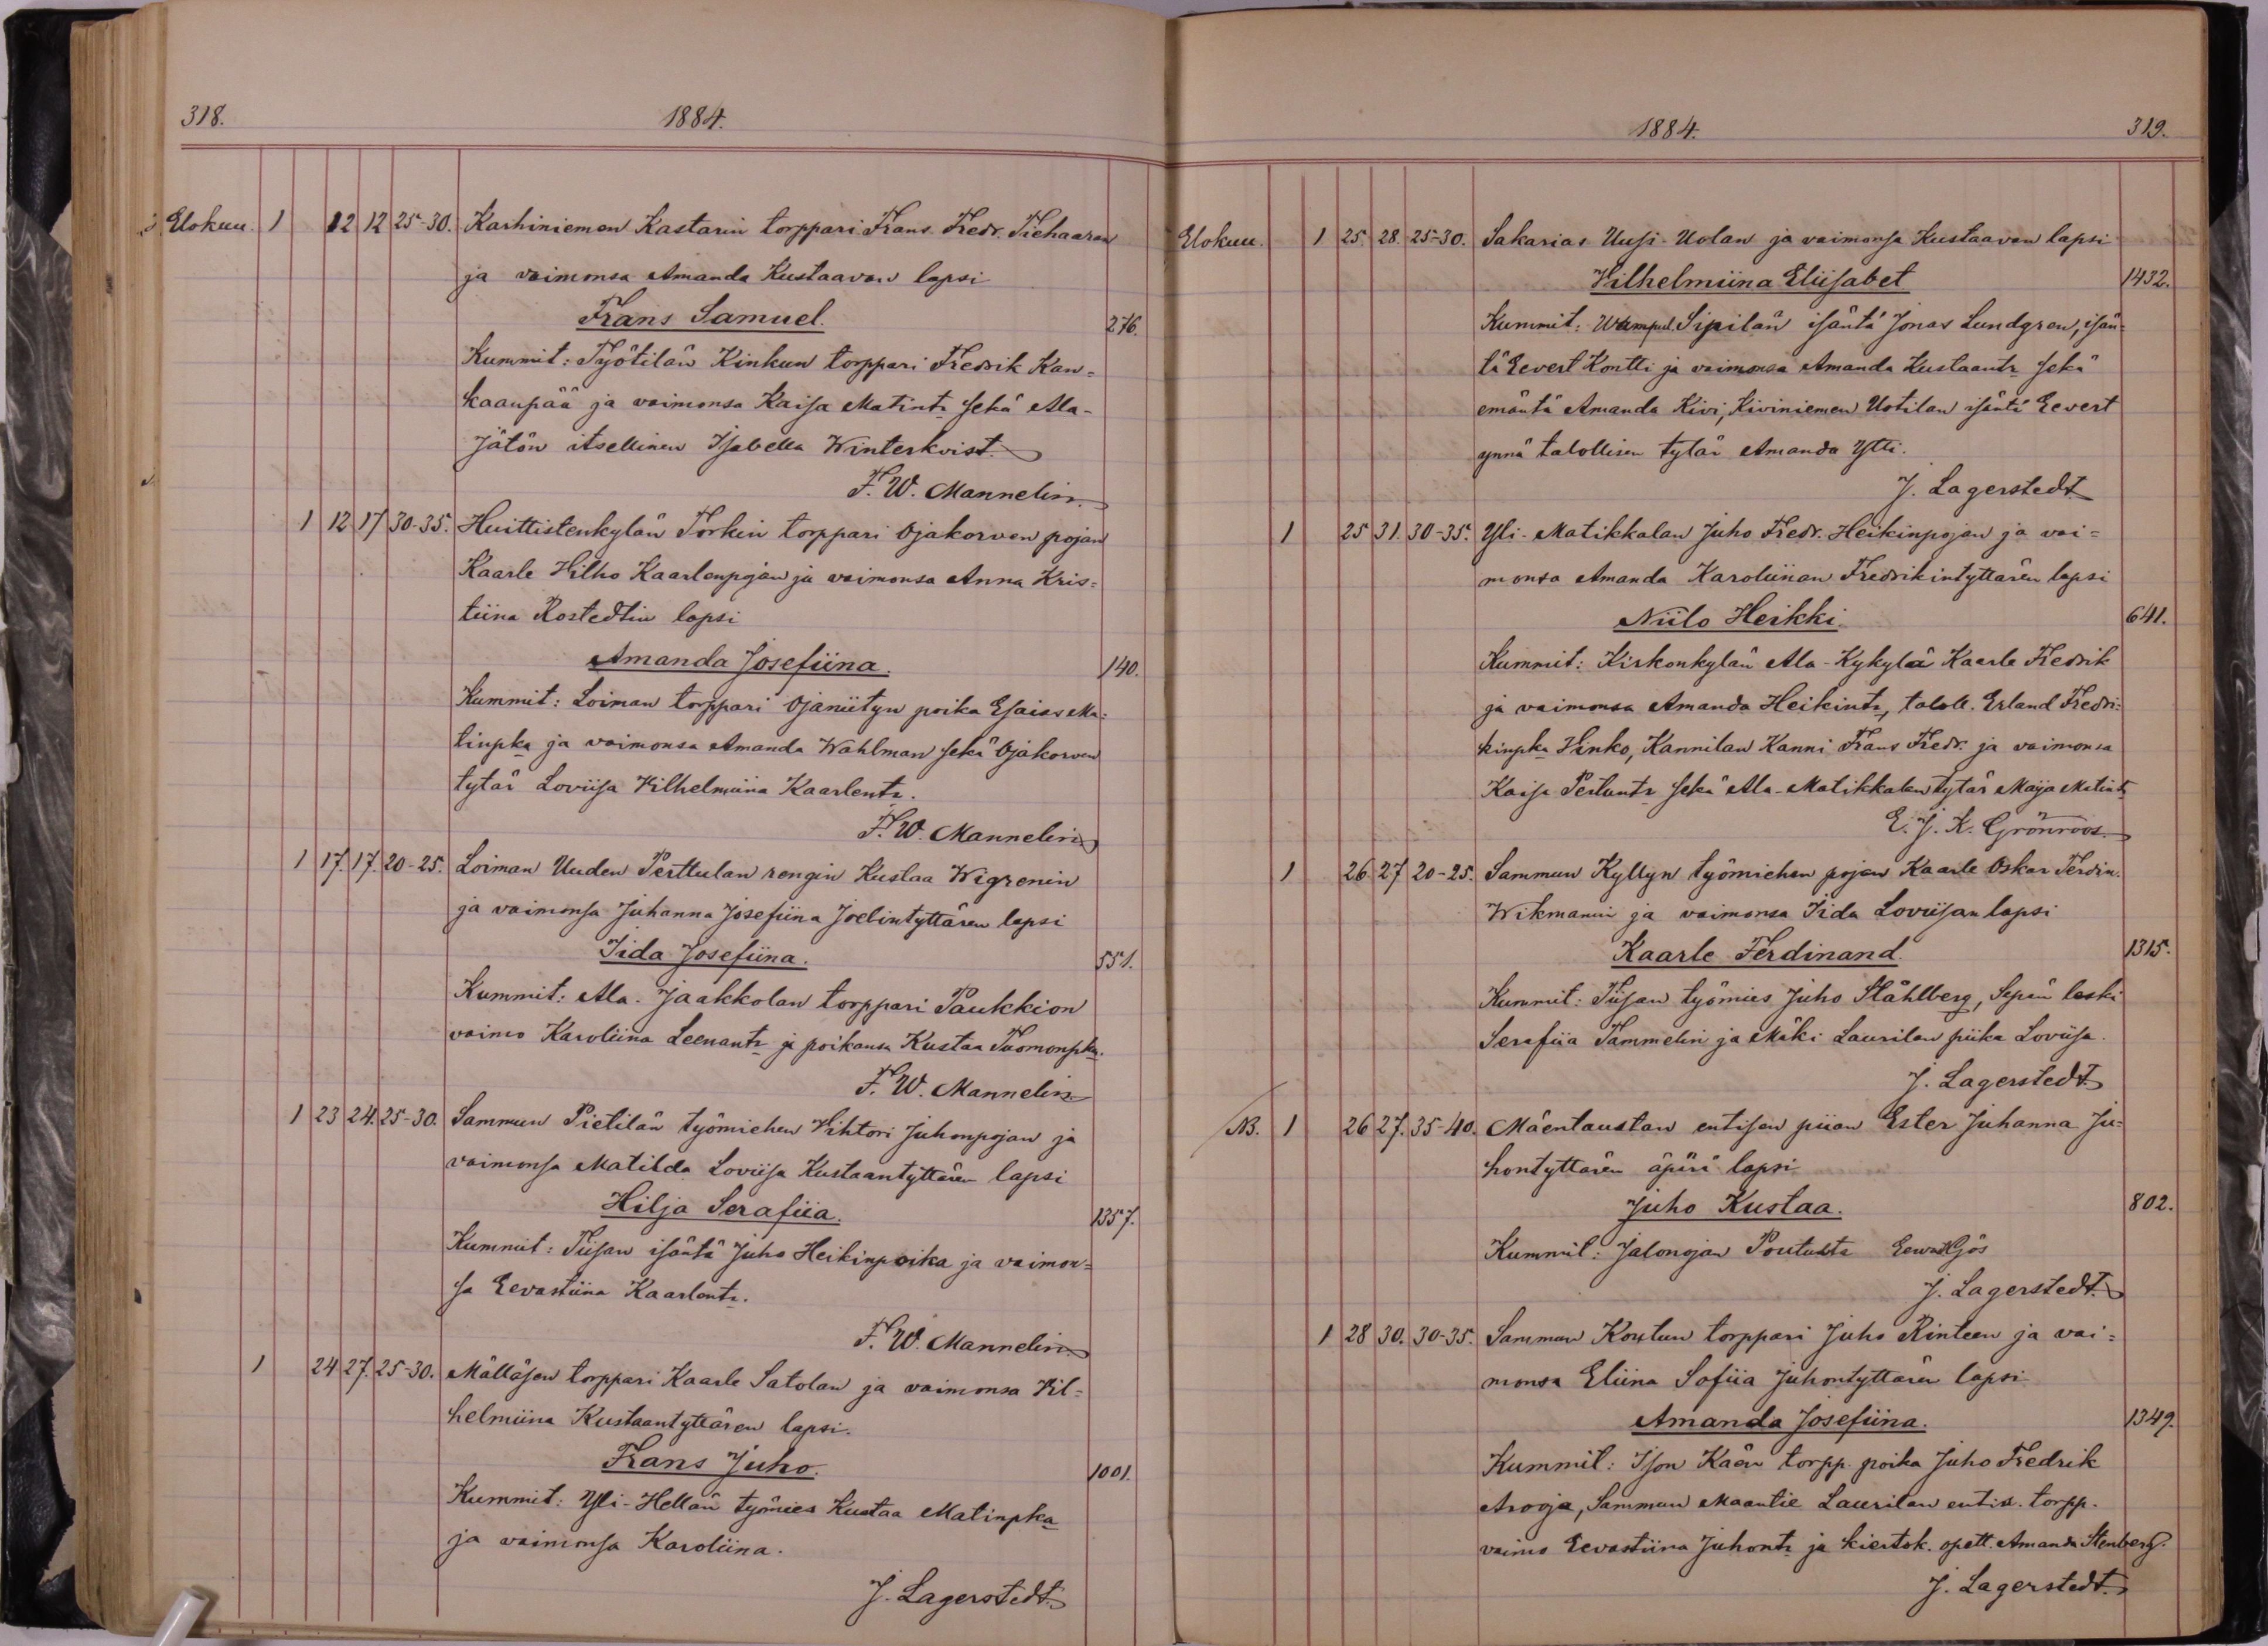 318. 1884.
Elokuu. 1 12 12 25-30. Karhiniemen Kastarin torppari Frans Fredr. Tiehaaran
ja vaimonsa Amanda Kustaavan lapsi
Frans Samuel. 276.
Kummit: Työtilän Kinkun torppari Fredrik Kan-
kaanpää ja vaimonsa Kaisa Matintr sekä Ala-
Jätön itsellinen Isabella Winterkvist.
F. W. Mannelin.
1 12 17 30-35. Huittistenkylän Torkin torppari Ojakorven pojan
Kaarle Vilho Kaarlenpojan ja vaimonsa Anna Kris-
tiina Rostedtin lapsi
Amanda Josefiina. 140.
Kummit: Loiman torppari Ojaniityn poika Esaias Ma-
tinpka ja vaimonsa Amanda Wahlman sekä Ojakorven
tytär Loviisa Vilhelmiina Kaarlentr.
F. W. Mannelin
1 17. 17. 20-25. Loiman Uuden Perttulan rengin Kustaa Wigrenin
ja vaimonsa Juhanna Josefiina Joelintyttären lapsi
Iida Josefiina. 551.
Kummit: Ala-Jaakkolan torppari Paukkion
vaimo Karoliina Leenantr ja poikansa Kustaa Tuomonpka.
F. W. Mannelin
1 23 24. 25-30. Sammun Pietilän työmiehen Vihtori Juhonpojan ja
vaimonsa Matilda Loviisa Kustaantyttären lapsi
Hilja Serafiia. 1357.
Kummit: Tiisan isäntä Juho Heikinpoika ja vaimon-
sa Eevastiina Kaarlentr.
F. W. Mannelin
1 24 27. 25-30. Mälläsen torppari Kaarle Satolan ja vaimonsa Vil-
helmiina Kustaantyttären lapsi.
Frans Juho. 1001.
Kummit: Yli-Hellän työmies Kustaa Matinpka
ja vaimonsa Karoliina.
J. Lagerstedt.
1884. 319.
Elokuu. 1 25. 28. 25-30. Sakarias Uusi-Uolan ja vaimonsa Kustaavan lapsi
Vilhelmiina Eliisabet 1432.
Kummit: Wampul. Sipilän isäntä Jonas Lundgren, isän-
tä Eevert Kontti ja vaimonsa Amanda Kustaantr sekä
emäntä Amanda Kivi, Kiviniemen Uotilan isäntä Eevert
ynnä talollisen tytär Amanda Ylli.
J. Lagerstedt
1 25 31. 30-35. Yli-Matikkalan Juho Fredr. Heikinpojan ja vai-
monsa Amanda Karoliinan Fredrikintyttären lapsi
Niilo Heikki. 641.
Kummit: Kirkonkylän Ala-Kykylä Kaarle Fredrik
ja vaimonsa Amanda Heikintr, taloll. Erland Fredri-
kinpka Hinko, Kannilan Kanni Frans Fredr. ja vaimonsa
Kaisa Pertuntr sekä Ala-Matikkalan tytär Maija Matintr
E. J. K. Grönroos.
1 26 27 20-25. Sammun Kyllyn työmiehen pojan Kaarle Oskar Ferdin.
Wikmanin ja vaimonsa Iida Loviisan lapsi
Kaarle Ferdinand. 1315.
Kummit: Tiisan työmies Juho Ståhlberg, Sepän leski
Serafiia Tammelin ja Mäki Laurilan piika Loviisa.
J. Lagerstedt
NB. 1 26 27. 35-40. Mäentaustan entisen piian Ester Juhanna Ju-
hontyttären äpärä lapsi
Juho Kustaa. 802.
Kummit: Jalonojan
J. Lagerstedt.
1 28 30. 30-35. Sammun torppari Juho Rinteen ja vai-
monsa Eliina Sofiia Juhontyttären lapsi
Amanda Josefiina. 1349.
Kummit: Ison Kaen torpp. poika Juho Fredrik
Arooja, Sammun Maantie Laurilan entis. torpp.
vaimo Eevastiina Juhontr ja kiertok. opett. Amanda Stenberg.
J. Lagerstedt.